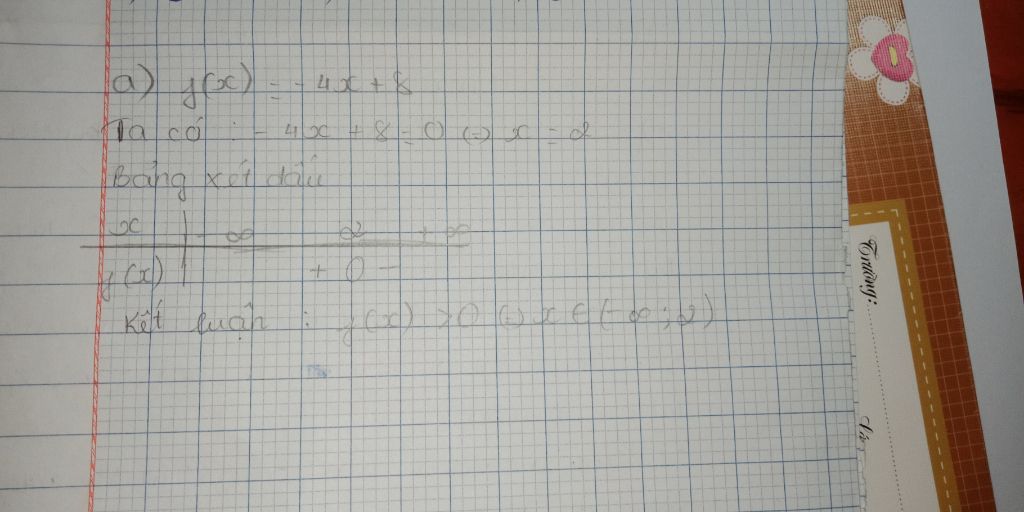 a) f(x) = -4x + 8
Ta có : -4x + 8 = 0 (=) x = 2
Bảng xét dấu
x | -∞ 2 +∞
f(x) | + 0 -
Kết luận : f(x) > 0 (=) x ∈ (-∞ ; 2)
Trường: